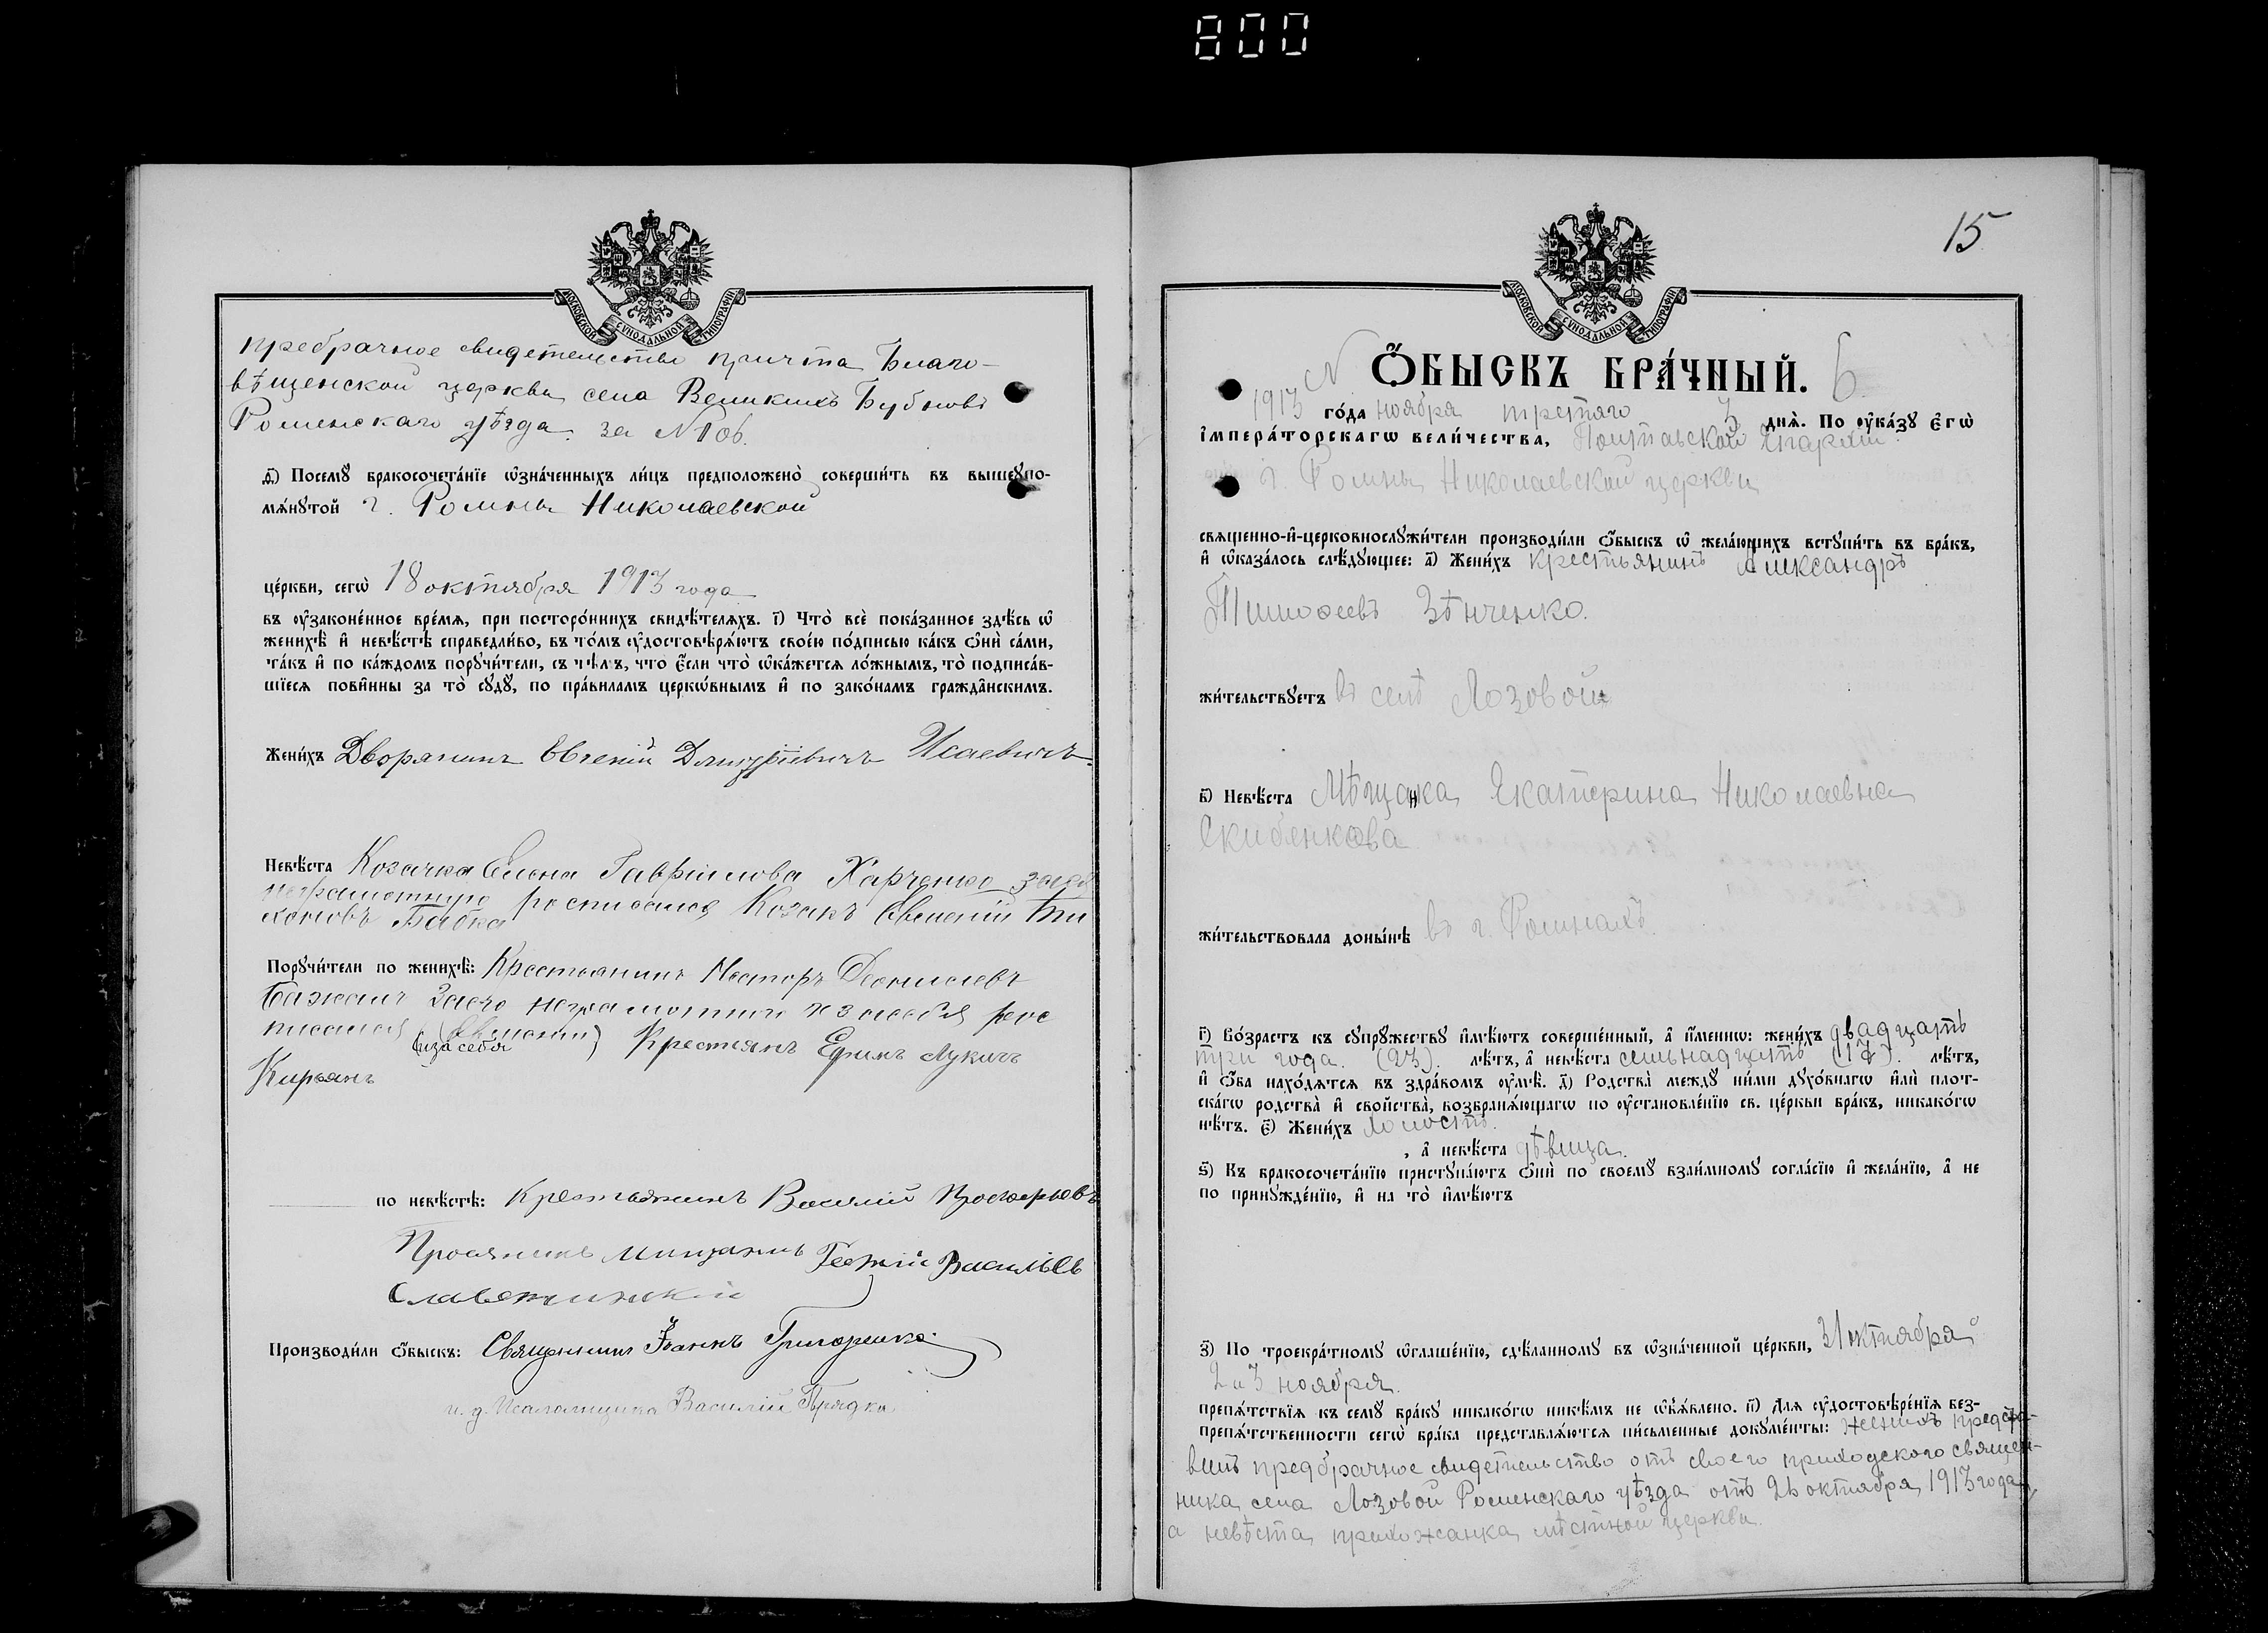 800
МОСКОВСКОЙ СУНОДАЛЬНОЙ ТИПОГРАФІИ
пребрачное свидетельство причта Благо-
вѣщенской церкви села Великихъ Бубновъ
Роменскаго уѣзда за №106.
д҃) Посемꙋ бракосочета́нїе ѡ҆зна́ченныхъ ли́цъ предположено̀ соверши́ть въ вышеꙋпо-
мѧ́нꙋтой г. Ромны Николаевской
це́ркви, сегѡ̀ 18 октября 1913 года
въ ᲂу҆законе́нное вре́мѧ, при посторо́ннихъ свидѣ́телѧхъ. і҃) Что̀ всѐ пока́занное здѣ́сь ѡ҆
женихѣ̀ и҆ невѣ́стѣ справедли́во, въ то́мъ ᲂу҆достовѣрѧ́ютъ свое́ю по́дписью ка́къ ѻ҆нѝ са́ми,
та́къ и҆ по ка́ждомъ порꙋчи́тели, съ тѣ́мъ, что є҆́сли что̀ ѡ҆ка́жетсѧ ло́жнымъ, то̀ подписа́в-
шїесѧ пови́нны за то̀ сꙋдꙋ̀, по пра́виламъ церко́внымъ и҆ по зако́намъ гражда́нскимъ.
Жени́хъ Дворянинъ Евгеній Дмитріевичъ Исаевичъ.
Невѣ́ста Козачка Елена Гавріилова Харченко за ея
неграмотную росписался Козакъ Евмений Ти
хоновъ Бабка
Порꙋчи́тели по женихѣ̀: Крестьянинъ Несторъ Деонисиевъ
Бажанъ за его неграмотного и за себя рос
писался
(и за себя) Крестянъ Ефимъ Лукичъ
Кирьянъ
по невѣ́стѣ: Крестьянинъ Василий
мищанинъ Василіев
Производи́ли ѻ҆́быскъ: Священникъ Іоаннъ Григоренко
и. д. Псаломщика Василій Прядка
15
МОСКОВСКОЙ СУНОДАЛЬНОЙ ТИПОГРАФІИ
N Ѻ҆́БЫСКЪ БРА́ЧНЫЙ. 6
1913 го́да ноября третяго 3 днѧ̀. По ᲂу҆ка́зꙋ є҆гѡ̀
і҆мпера́торскагѡ вели́чества, Полтавской Епархіи
г. Ромны Николаевской церкви
свѧще́нно-и҆-церковнослꙋжи́тели производи́ли ѻ҆́быскъ ѡ҆ жела́ющихъ встꙋпи́ть въ бра́къ,
и҆ ѡ҆каза́лось слѣ́дꙋющее: а҃) Жени́хъ крестьянинъ Александръ
Тимофеевъ Зѣнченко.
жи́тельствꙋетъ въ селѣ Лозовой
в҃) Невѣ́ста Мѣщанка Екатерина Николаевна
Скибенкова
жи́тельствовала доны́нѣ въ г. Ромнахъ.
г҃) Во́зрастъ къ сꙋпрꙋ́жествꙋ и҆мѣ́ютъ соверше́нный, а҆ и҆́меннѡ: жени́хъ двадцать
три года. (23). лѣ́тъ, а҆ невѣ́ста семьнадцать (17). лѣ́тъ,
и҆ ѻ҆́ба нахо́дѧтсѧ въ здра́вомъ ᲂу҆мѣ̀. д҃) Родства̀ междꙋ̀ ни́ми дꙋхо́внагѡ и҆лѝ плот-
ска́гѡ родства̀ и҆ свойства̀, возбранѧ́ющагѡ по ᲂу҆становле́нїю св. це́ркви бра́къ, никако́гѡ
нѣ́тъ. є҃) Жени́хъ холостъ.
, а҆ невѣ́ста дѣвица.
ѕ҃) Къ бракосочета́нїю пристꙋпа́ютъ ѻ҆нѝ по своемꙋ̀ взаи́мномꙋ согла́сїю и҆ жела́нїю, а҆ не
по принꙋжде́нїю, и҆ на то̀ и҆мѣ́ютъ
з҃) По троекра́тномꙋ ѡ҆глаше́нїю, сдѣ́ланномꙋ въ ѡ҆зна́ченной це́ркви, 31 октября
2 и 3 ноября.
препѧ́тствїѧ къ семꙋ̀ бра́кꙋ никако́гѡ никѣ́мъ не ѡ҆б̾ѧ́влено. и҃) Длѧ ᲂу҆достовѣре́нїѧ без-
препѧ́тственности сегѡ̀ бра́ка представлѧ́ютсѧ пи́сьменные докꙋме́нты: Женихъ предста-
вилъ предбрачное свидетельство отъ своего приходского священ-
ника села Лозовой Роменскаго уѣзда отъ 26 октября 1913 года,
а невѣста прихожанка мѣстной церкви.